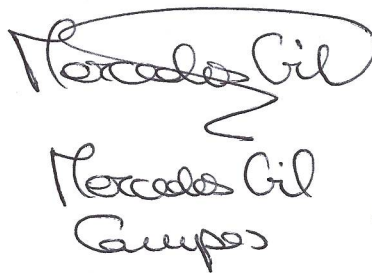 Mercedes Gil
Mercedes Gil
Campos